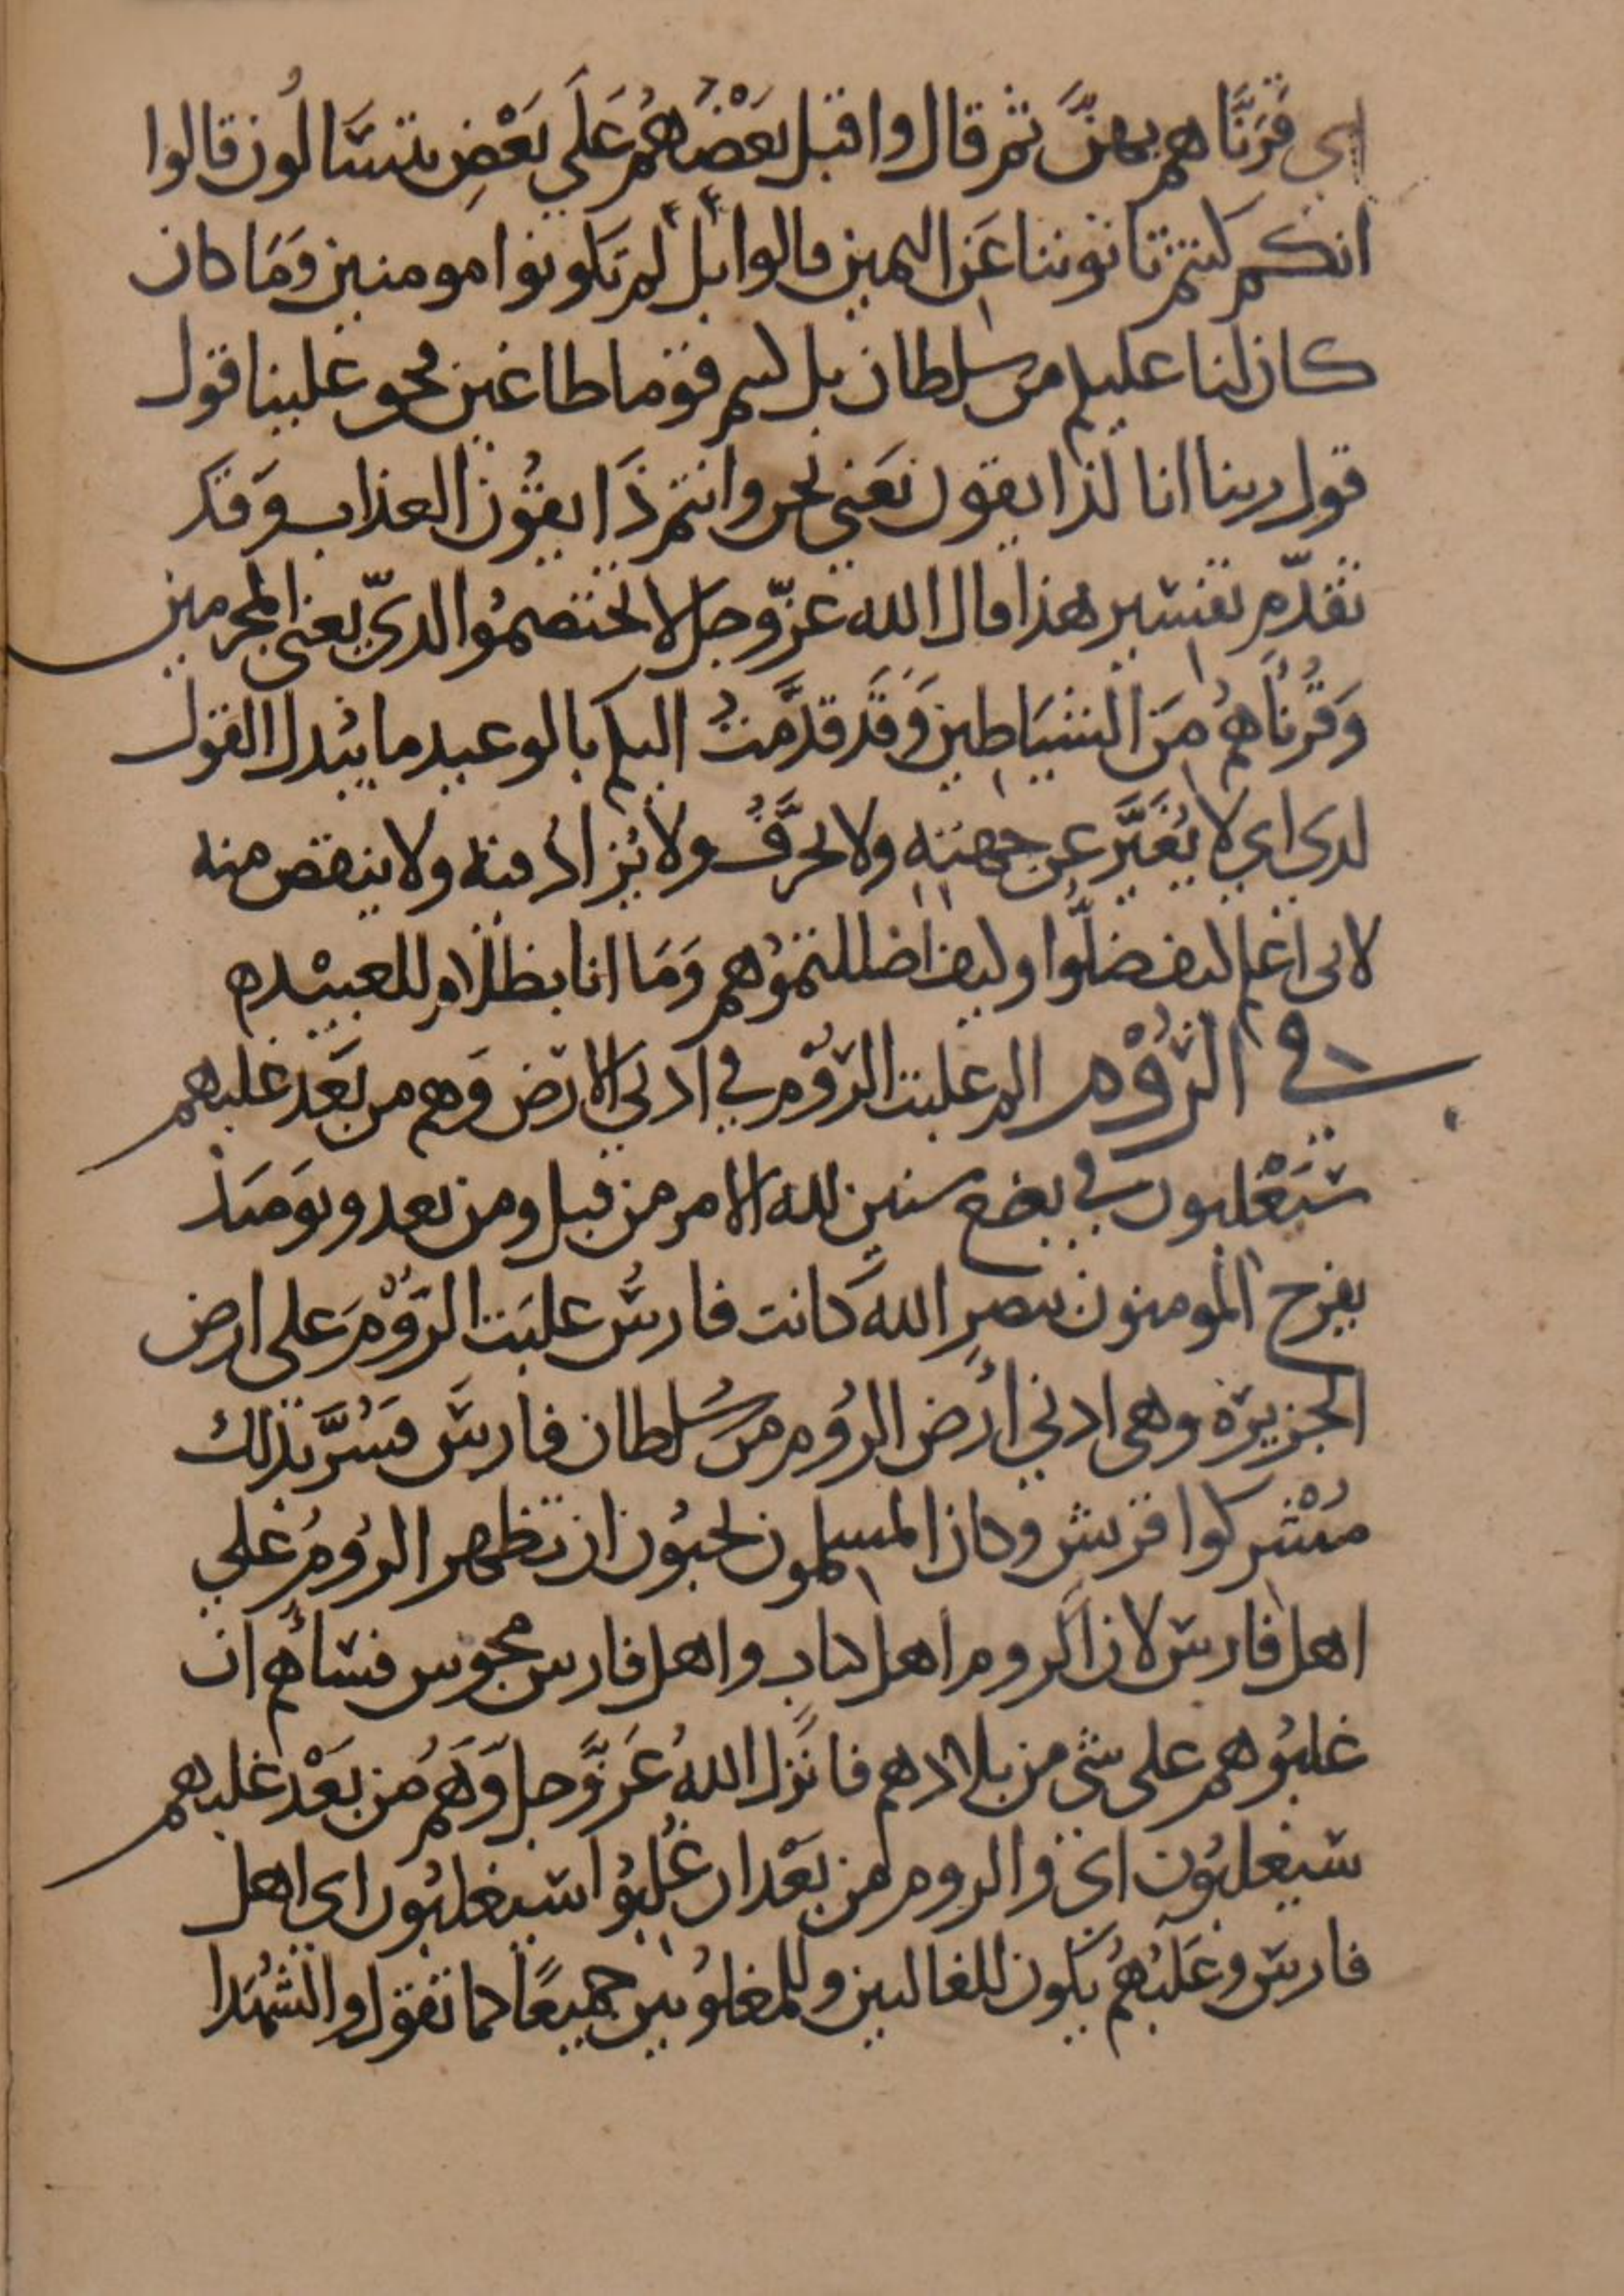 اي قَرَنَّاهم بهنَّ ثم قال واقبل بَعْضُهُم عَلَى بَعْضٍ يتسَالُون قالوا
انكم كنتم تاتوننا عَن اليمين قالوا بل لم تكونوا مومنين وَمَا كان
كان لنا عليكم من سلطان بل كنتم قوما طاغين فحق علينا قول
قول ربنا انا لذايقون نَعَني نحن وانتم ذَايقُون العذاب وَقَد
تقدّم تفسير هذا قال الله عزّ وجل لا تختصمُوا لديّ يعني المجرمين
وَقُرنَاهُم مَن الشيَاطين وَقَد قدَّمتُ اليكم بالوعيد ما يُبدل القول
لدي اي لا يُغَيَّر عن جهته ولا يحرَّفُ ولا يُزَاد فيه ولا ينقص منه
لاني اعلم كيف ضلُّوا وكيف اضللتمُوهم وَمَا انا بظلام للعبيْد ه
في الرُّوْم الم غلبت الرُّوْم في ادنى الارض وَهم من بَعْد غلبهم
سَيَغْلبون في بضع سنين لله الامر من قبل ومن بعد ويومَىذ
يفرح المومنون بنصرِ الله كَانت فارسُ غلبَت الرُّوْمَ على ارض
الجزيرة وهي ادنى اَرض الرُوم من سُلطان فارسَ فسُرَّ بذلك
مُشْركوا قريش وكان المسلمون يحبُون ان تظهر الرُومُ على
اهل فارس لان الروم اهل كتاب واهل فارس مجوس فسَاَهم ان
غلبُوهم على شي من بلادهم فانَزل اللهُ عَزوَّجل وَهُم مُن بَعْد غلبهم
سَيغلبُون اي والروم من بَعْد ان غُلبُوا سَيغلبُون اي اهل
فارسَ وغَلَبُهُم يَكون للغالبين وللمغلُوبين جميعًا كما تقول والشُهَدا